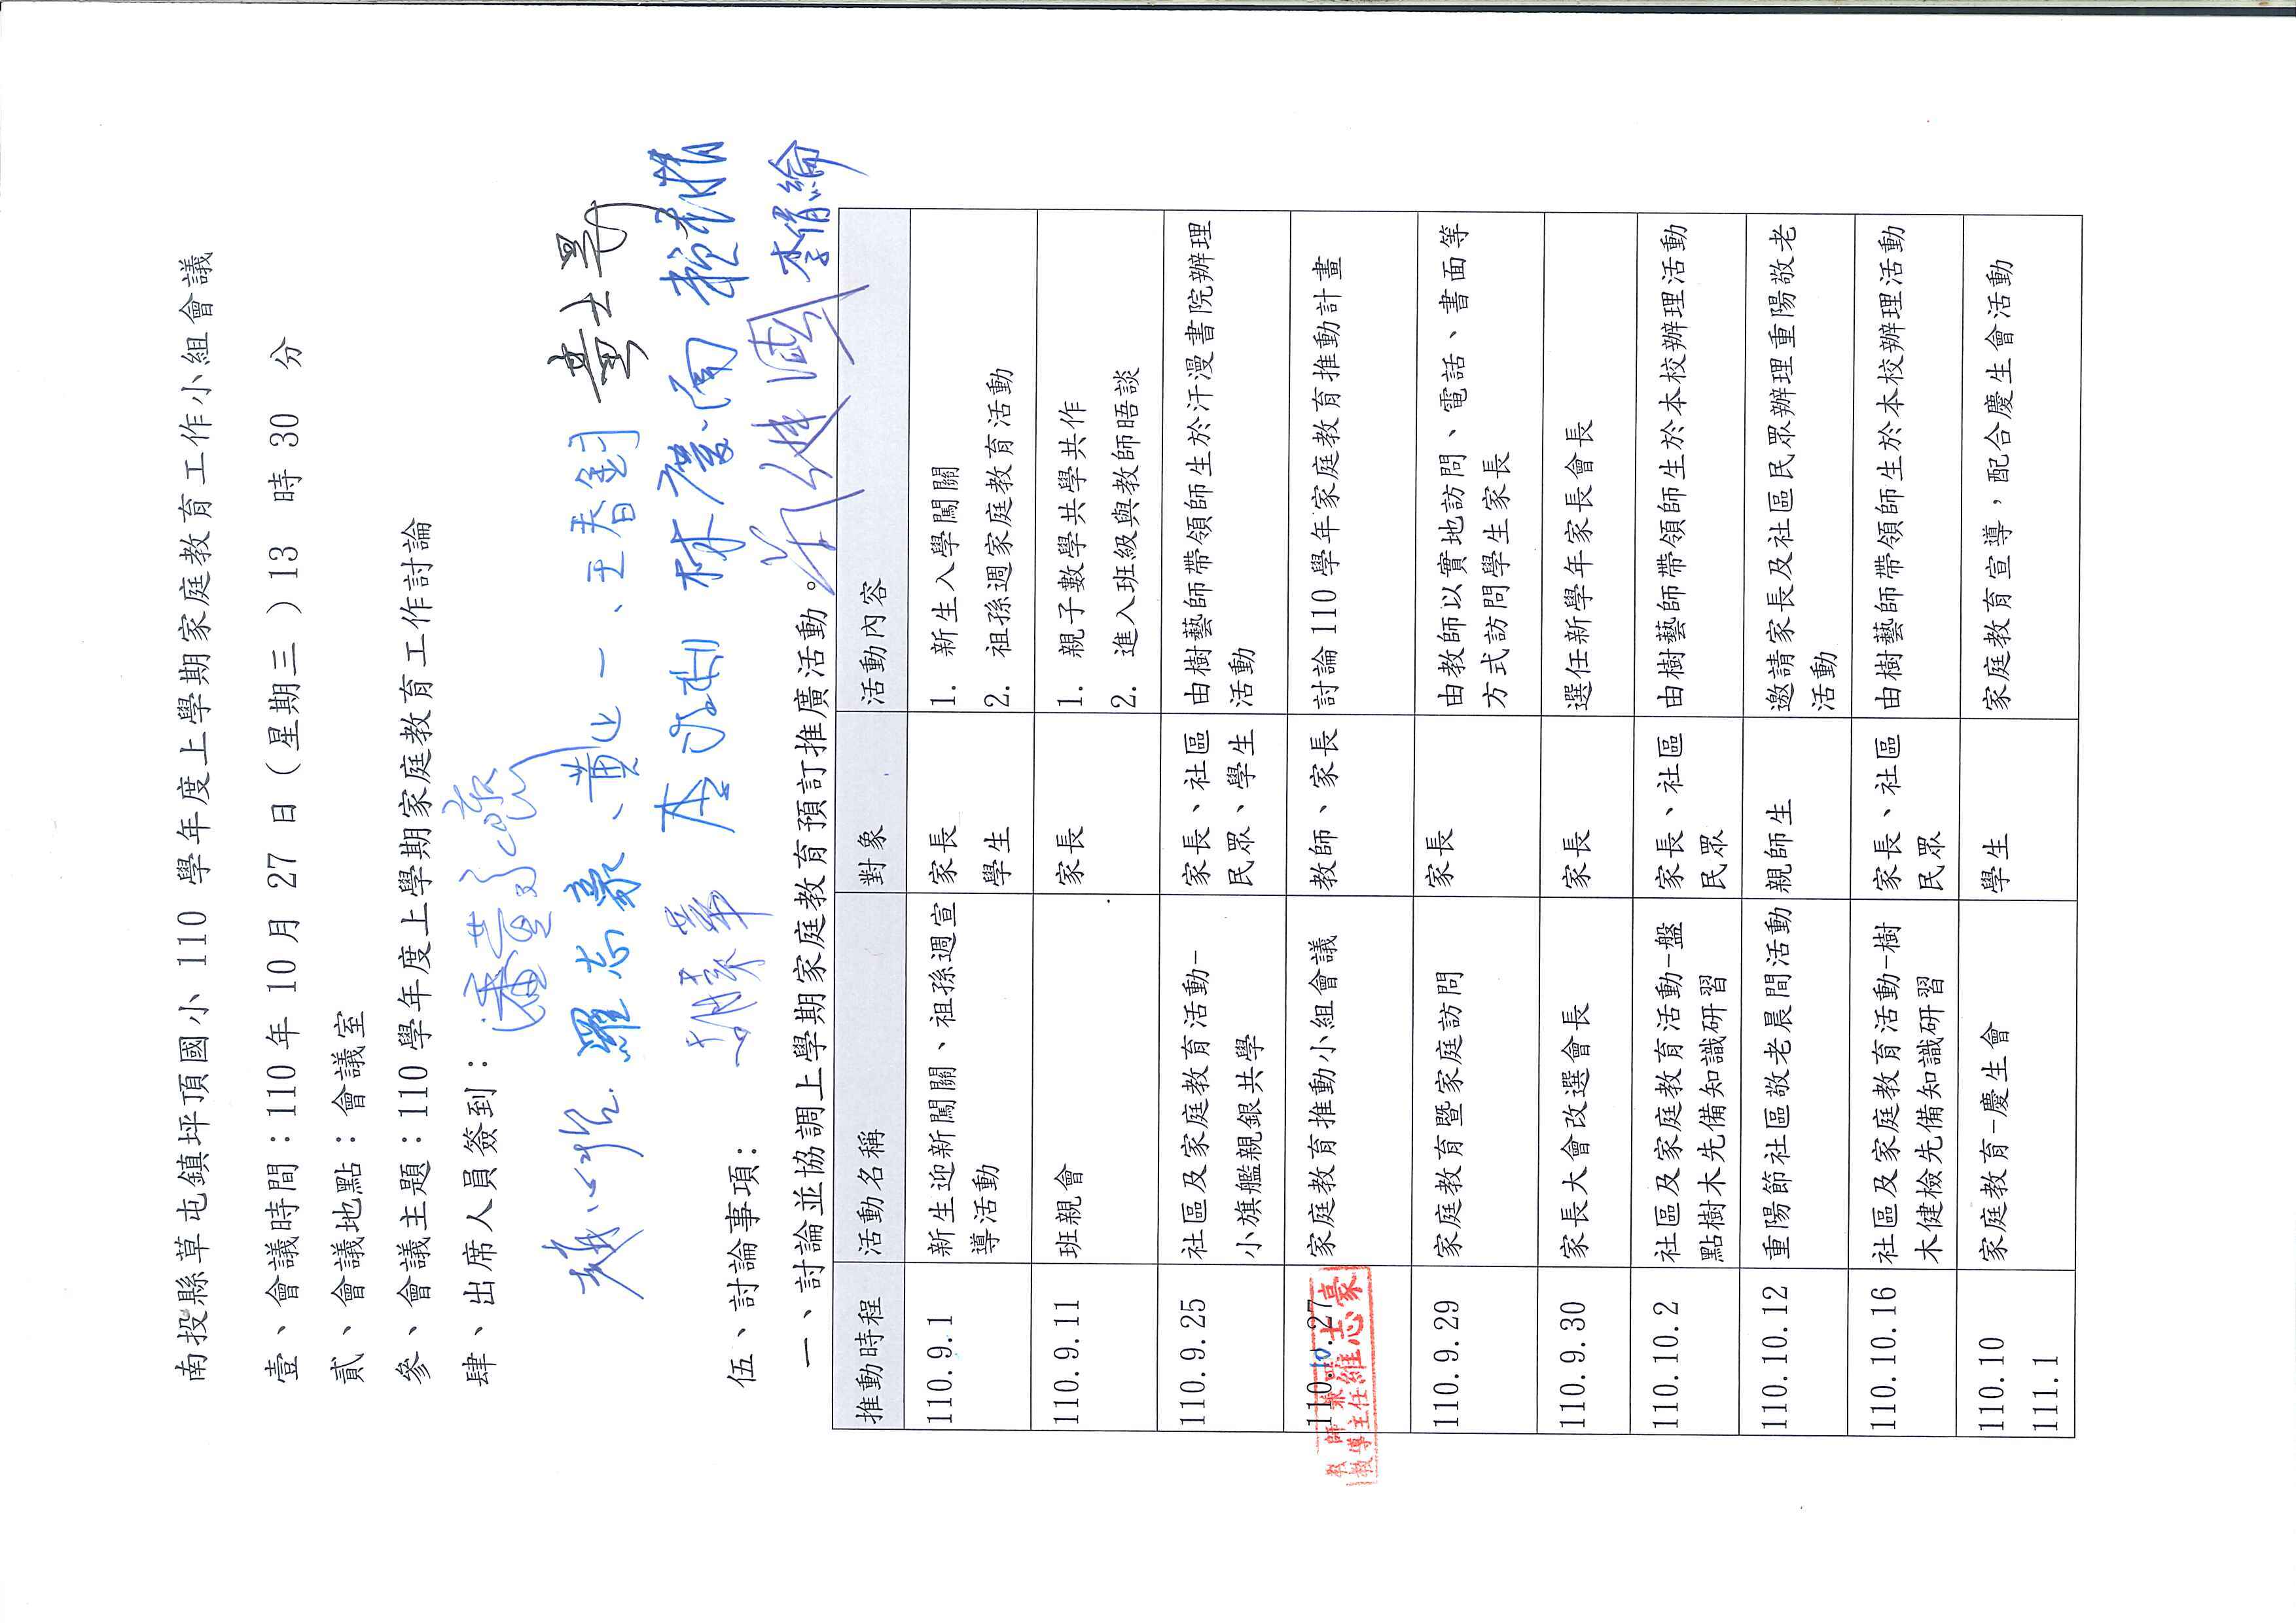 南投縣草屯鎮坪頂國小 110 學年度上學期家庭教育工作小組會議
壹、會議時間：110 年 10 月 27 日（星期三）13 時 30 分
貳、會議地點：會議室
參、會議主題：110 學年度上學期家庭教育工作討論
肆、出席人員簽到：
羅志豪、黃
伍、討論事項：
李俏綸
一、討論並協調上學期家庭教育預訂推廣活動。
推動時程 活動名稱 對象 活動內容
110.9.1 新生迎新闖關、祖孫週宣 家長 1. 新生入學闖關
導活動 學生 2. 祖孫週家庭教育活動
110.9.11 班親會 家長 1. 親子數學共學共作
2. 進入班級與教師晤談
110.9.25 社區及家庭教育活動- 家長、社區 由樹藝師帶領師生於汗漫書院辦理
小旗艦親銀共學 民眾、學生 活動
110.10.27 家庭教育推動小組會議 教師、家長 討論 110 學年家庭教育推動計畫
教師兼
教導主任 羅志豪
110.9.29 家庭教育暨家庭訪問 家長 由教師以實地訪問、電話、書面等
方式訪問學生家長
110.9.30 家長大會改選會長 家長 選任新學年家長會長
110.10.2 社區及家庭教育活動-盤 家長、社區 由樹藝師帶領師生於本校辦理活動
點樹木先備知識研習 民眾
110.10.12 重陽節社區敬老晨間活動 親師生 邀請家長及社區民眾辦理重陽敬老
活動
110.10.16 社區及家庭教育活動-樹 家長、社區 由樹藝師帶領師生於本校辦理活動
木健檢先備知識研習 民眾
110.10 家庭教育-慶生會 學生 家庭教育宣導，配合慶生會活動
111.1